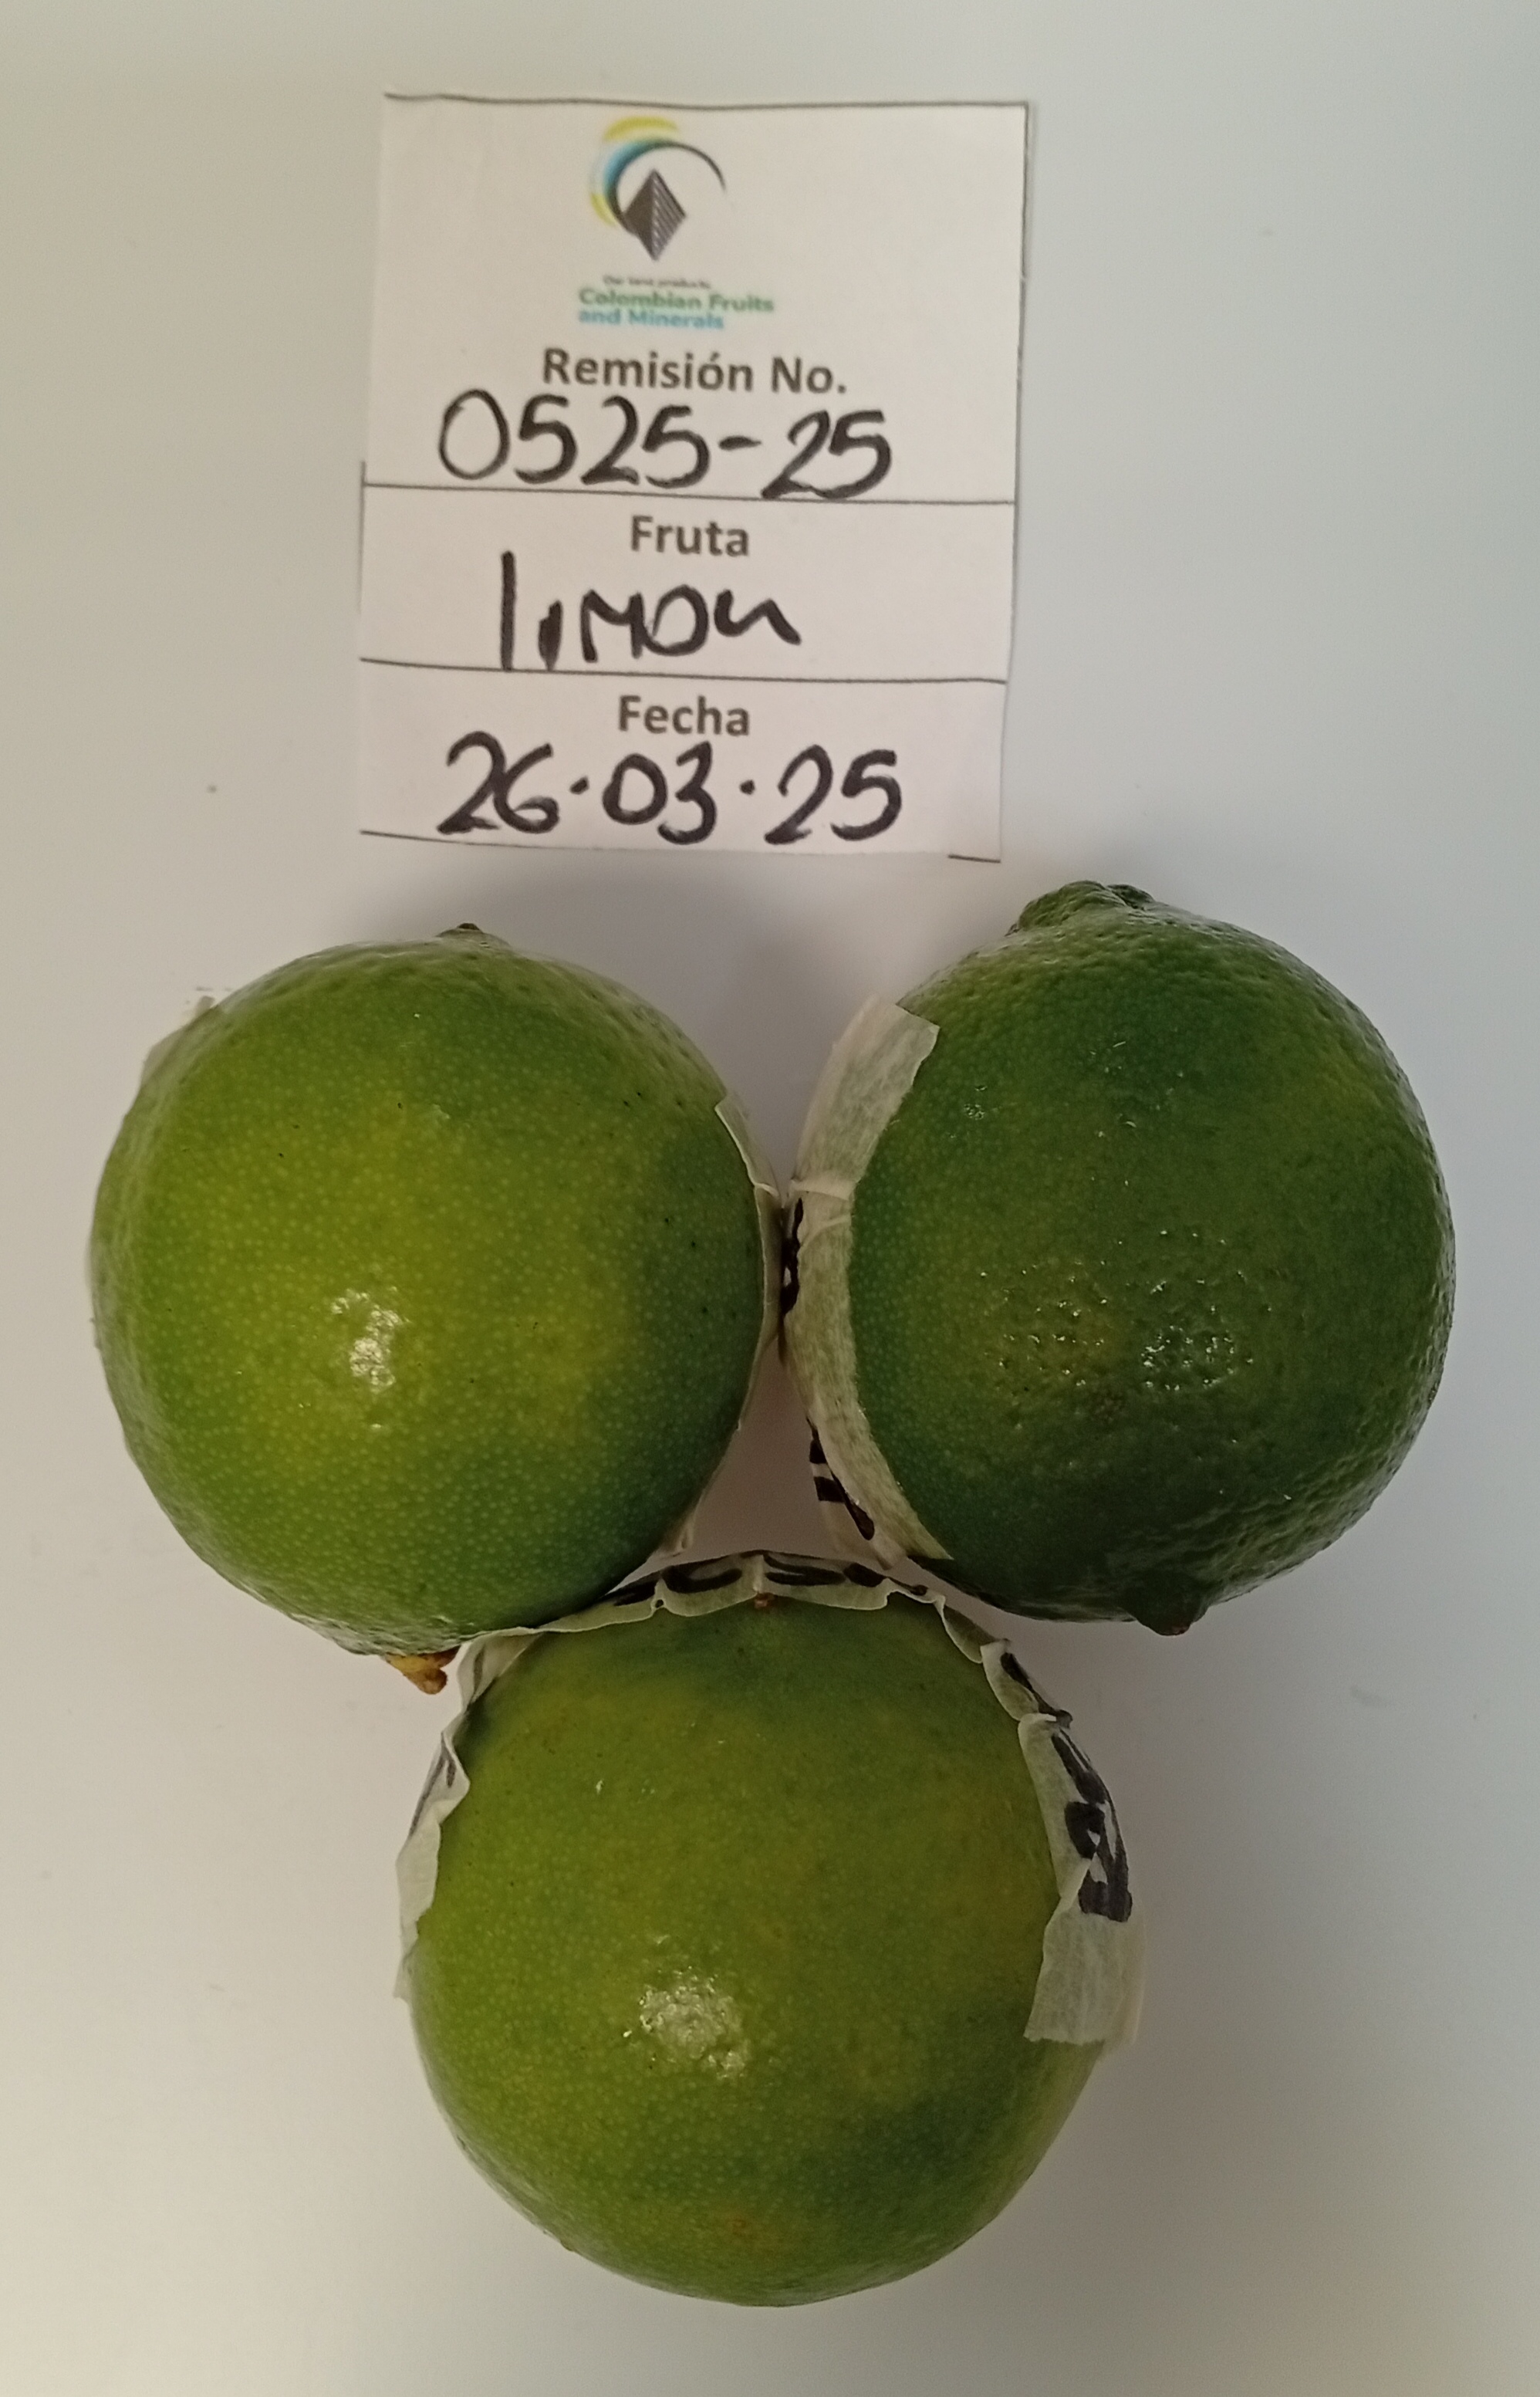 Our land products
Colombian Fruits
and Minerals
Remisión No.
0525-25
Fruta
limon
Fecha
26·03·25